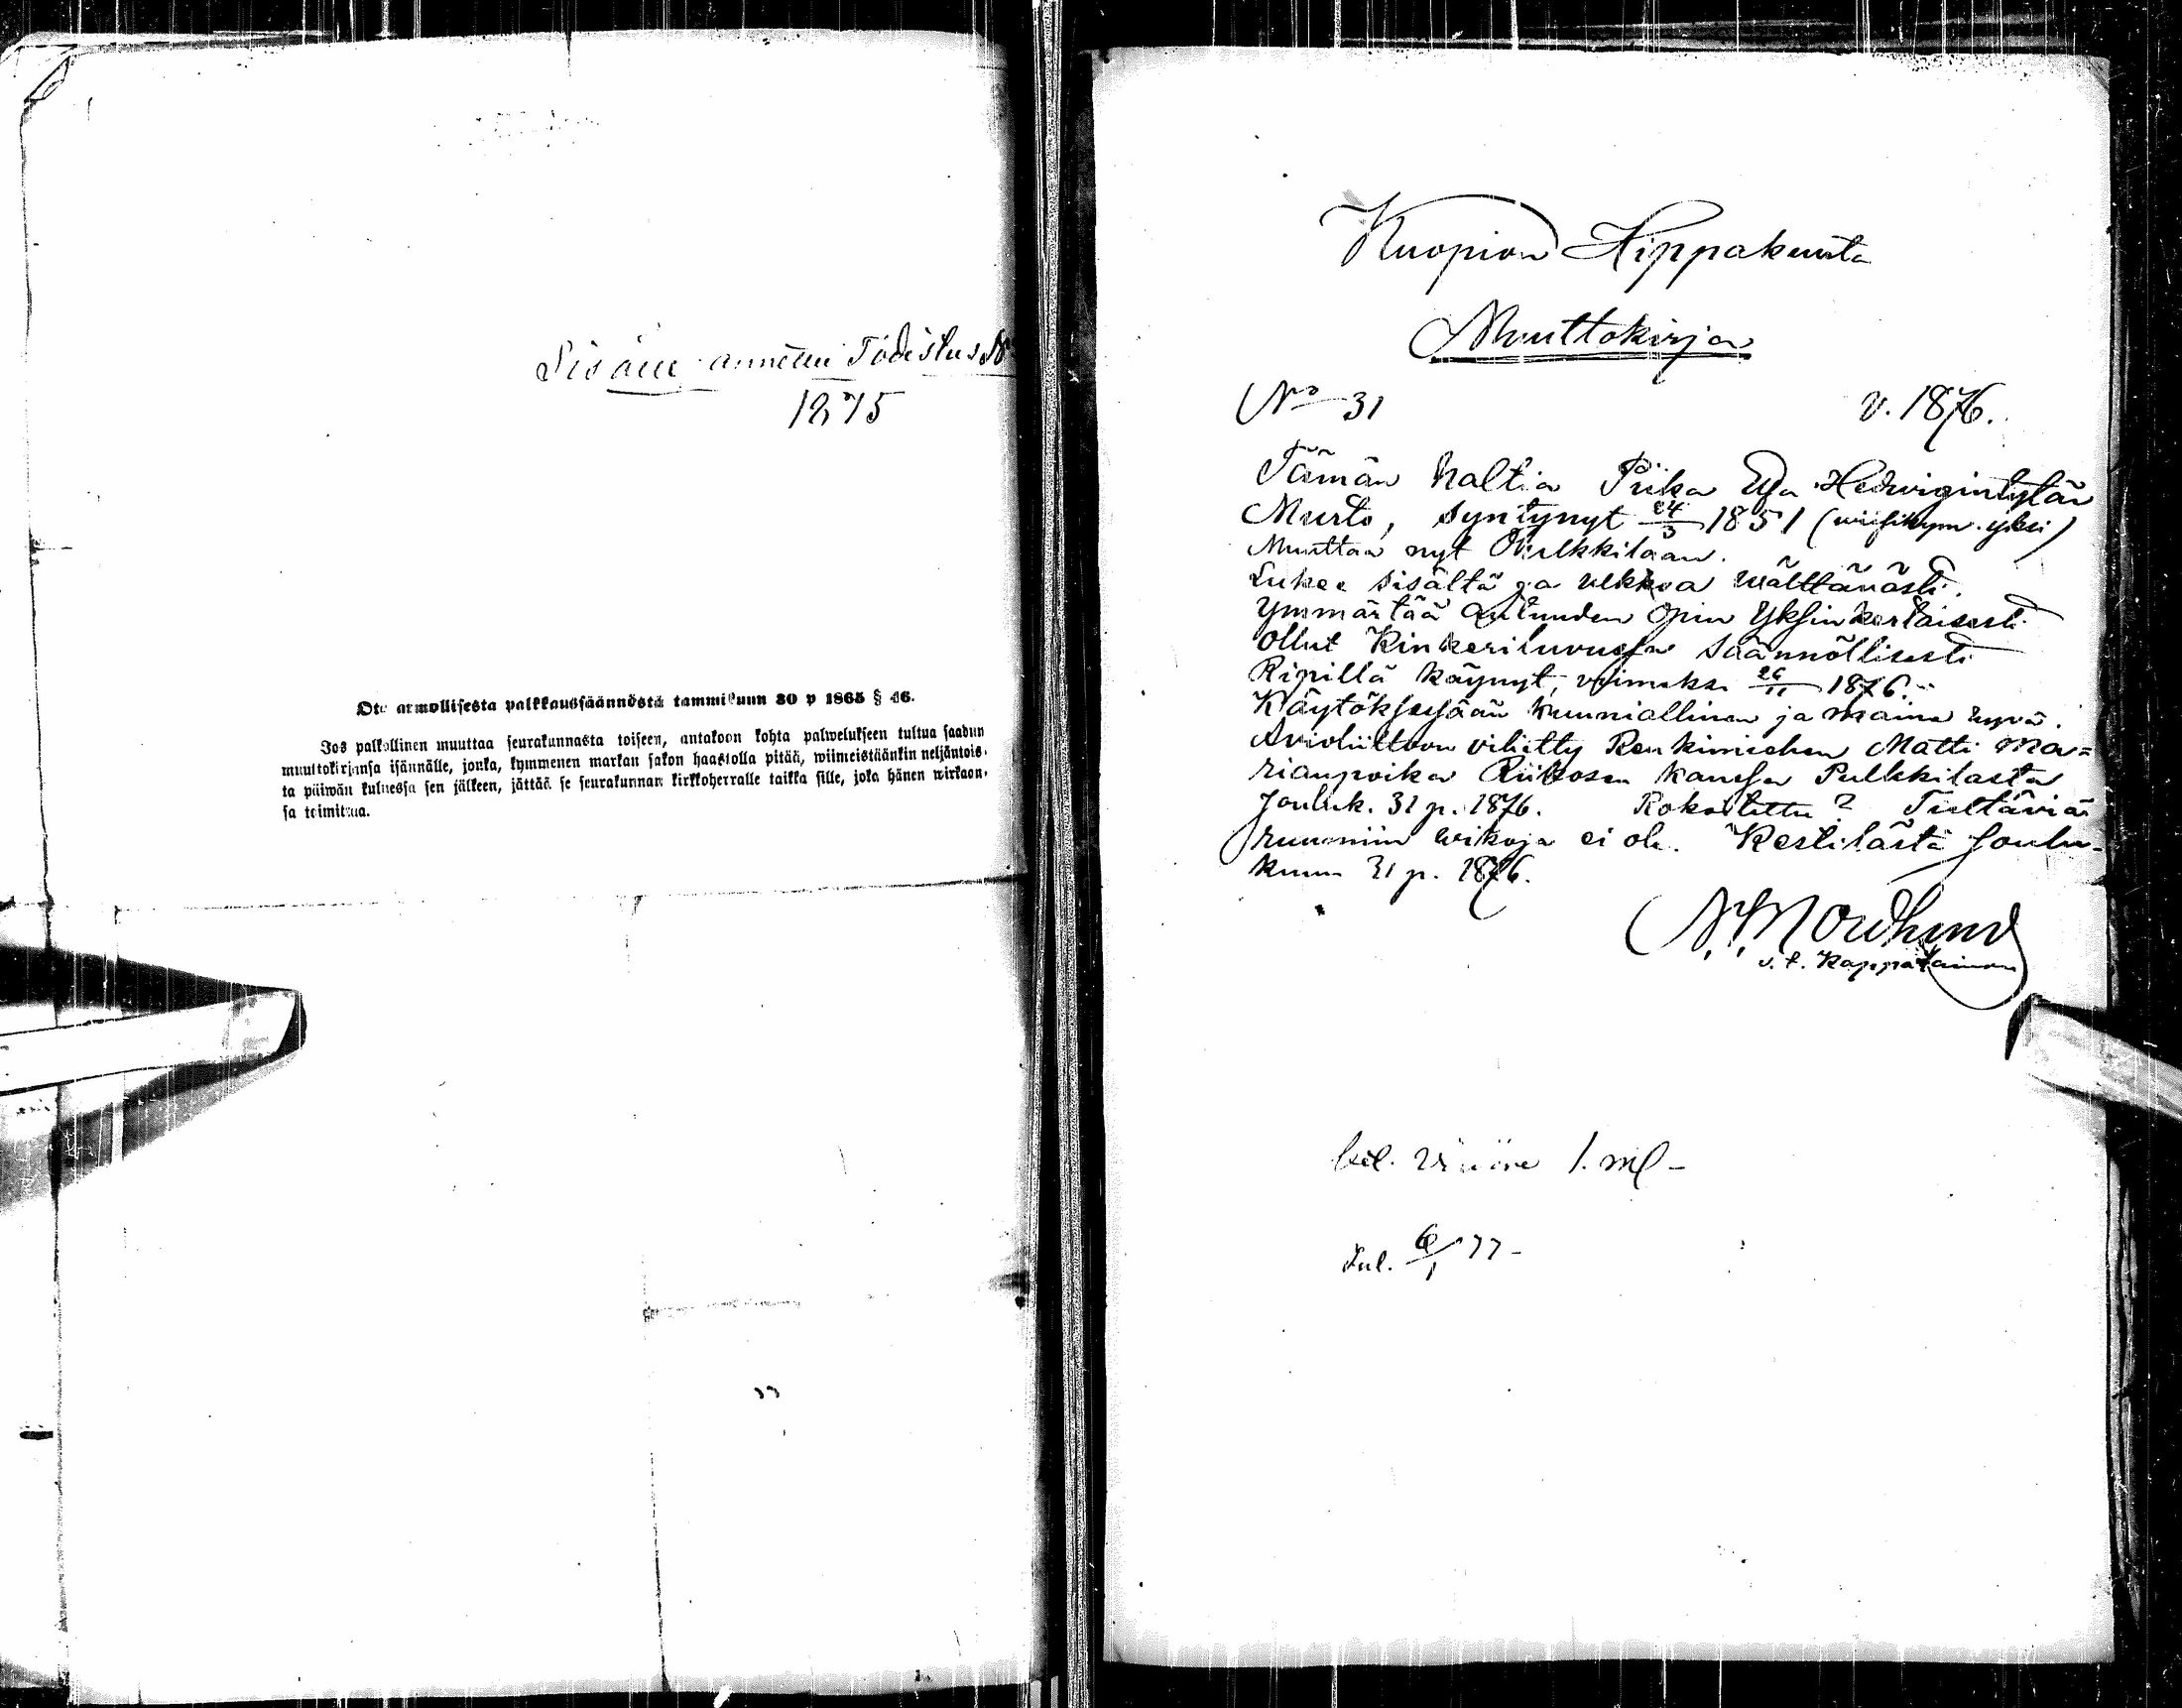 Sisälle annettu Todistus N
1875
Ote armollisesta palkkaussäännöstä tammikuun 30 p 1865 § 46.
Jos palkollinen muuttaa seurakunnasta toiseen, antakoon kohta palwelukseen tultua saadun
muuttokirjansa isännälle, jonka, kymmenen markan sakon haastolla pitää, wiimeistäänkin neljäntois-
ta päiwän kuluessa sen jälkeen, jättää se seurakunnan kirkkoherralle taikka sille, joka hänen wirkaan-
sa toimittaa.
Kuopion Hippakunta
Muuttokirja
No 31 v. 1876.
Tämän haltia Piika Hedvigintytär
Murto, syntynyt 24/3 1851 (wiisikym. yksi)
Muuttaa nyt Pulkkilaan.
Lukee sisältä ja ulkkoa wälttäwästi.
Ymmärtää autuuden opin Yksinkertaisesti
Ollut Kinkeriluvussa Säännöllisesti
Ripillä käynyt, viimeksi 26/11 1876.
Käytöksessään kunniallinen ja maine hyvä.
Avioliittoon vihitty Renkimiehen Matti Ma=
rianpoika Riikosen kanssa Pulkkilasta
Jouluk. 31 p. 1876. Rokotettu? Tiettäviä
ruumiin wikoja ei ole. Kestilästä Joulu-
kuun 31 p. 1876.
Nordlund
v. t. Kappalainen
1. ml -
6/1 77 -